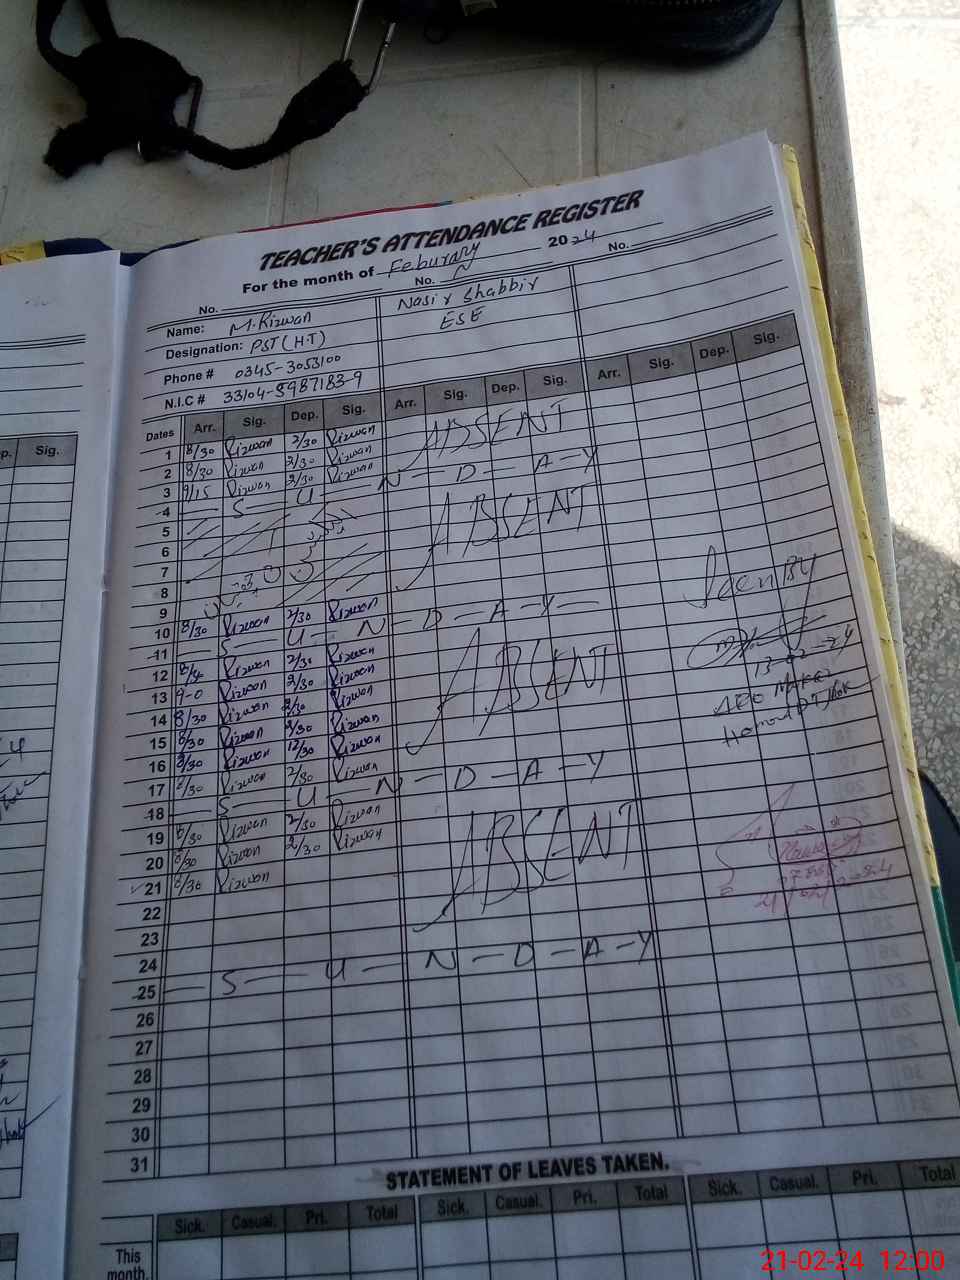 TEACHER'S ATTENDANCE REGISTER
For the month of Feburary 2024
No. No. No.
Name: M.Rizwan Nasir Shabbir
Designation: PST(H.T) ESE
Phone # 0345-3053100
N.I.C # 33104-5987183-9
Dates Arr. Sig. Dep. Sig. Arr. Sig. Dep. Sig. Arr. Sig. Dep. Sig.
1 8/30 Rizwan 2/30 Rizwan ABSENT
2 8/30 Rizwan 2/30 Rizwan
3 9/15 Rizwan 2/30 Rizwan
4 S-U-N-D-A-Y
5 ABSENT
6
7
8
9
10 8/30 Rizwan 2/30 Rizwan
11 S-U-N-D-A-Y
12 Rizwan 2/30 Rizwan ABSENT
13 9-0 Rizwan 2/30 Rizwan
14 8/30 Rizwan 2/30 Rizwan
15 8/30 Rizwan 2/30 Rizwan
16 8/30 Rizwan 12/30 Rizwan
17 8/30 Rizwan 2/30 Rizwan
18 S-U-N-D-A-Y
19 8/30 Rizwan 2/30 Rizwan ABSENT
20 8/30 Rizwan 2/30 Rizwan
21 8/30 Rizwan
22
23
24
25 S-U-N-D-A-Y
26
27
28
29
30
31
Seen By
13-02-24
AEO
STATEMENT OF LEAVES TAKEN.
Sick. Casual. Pri. Total Sick. Casual. Pri. Total Sick. Casual. Pri. Total
This month.
p. Sig.
21-02-24 12:00